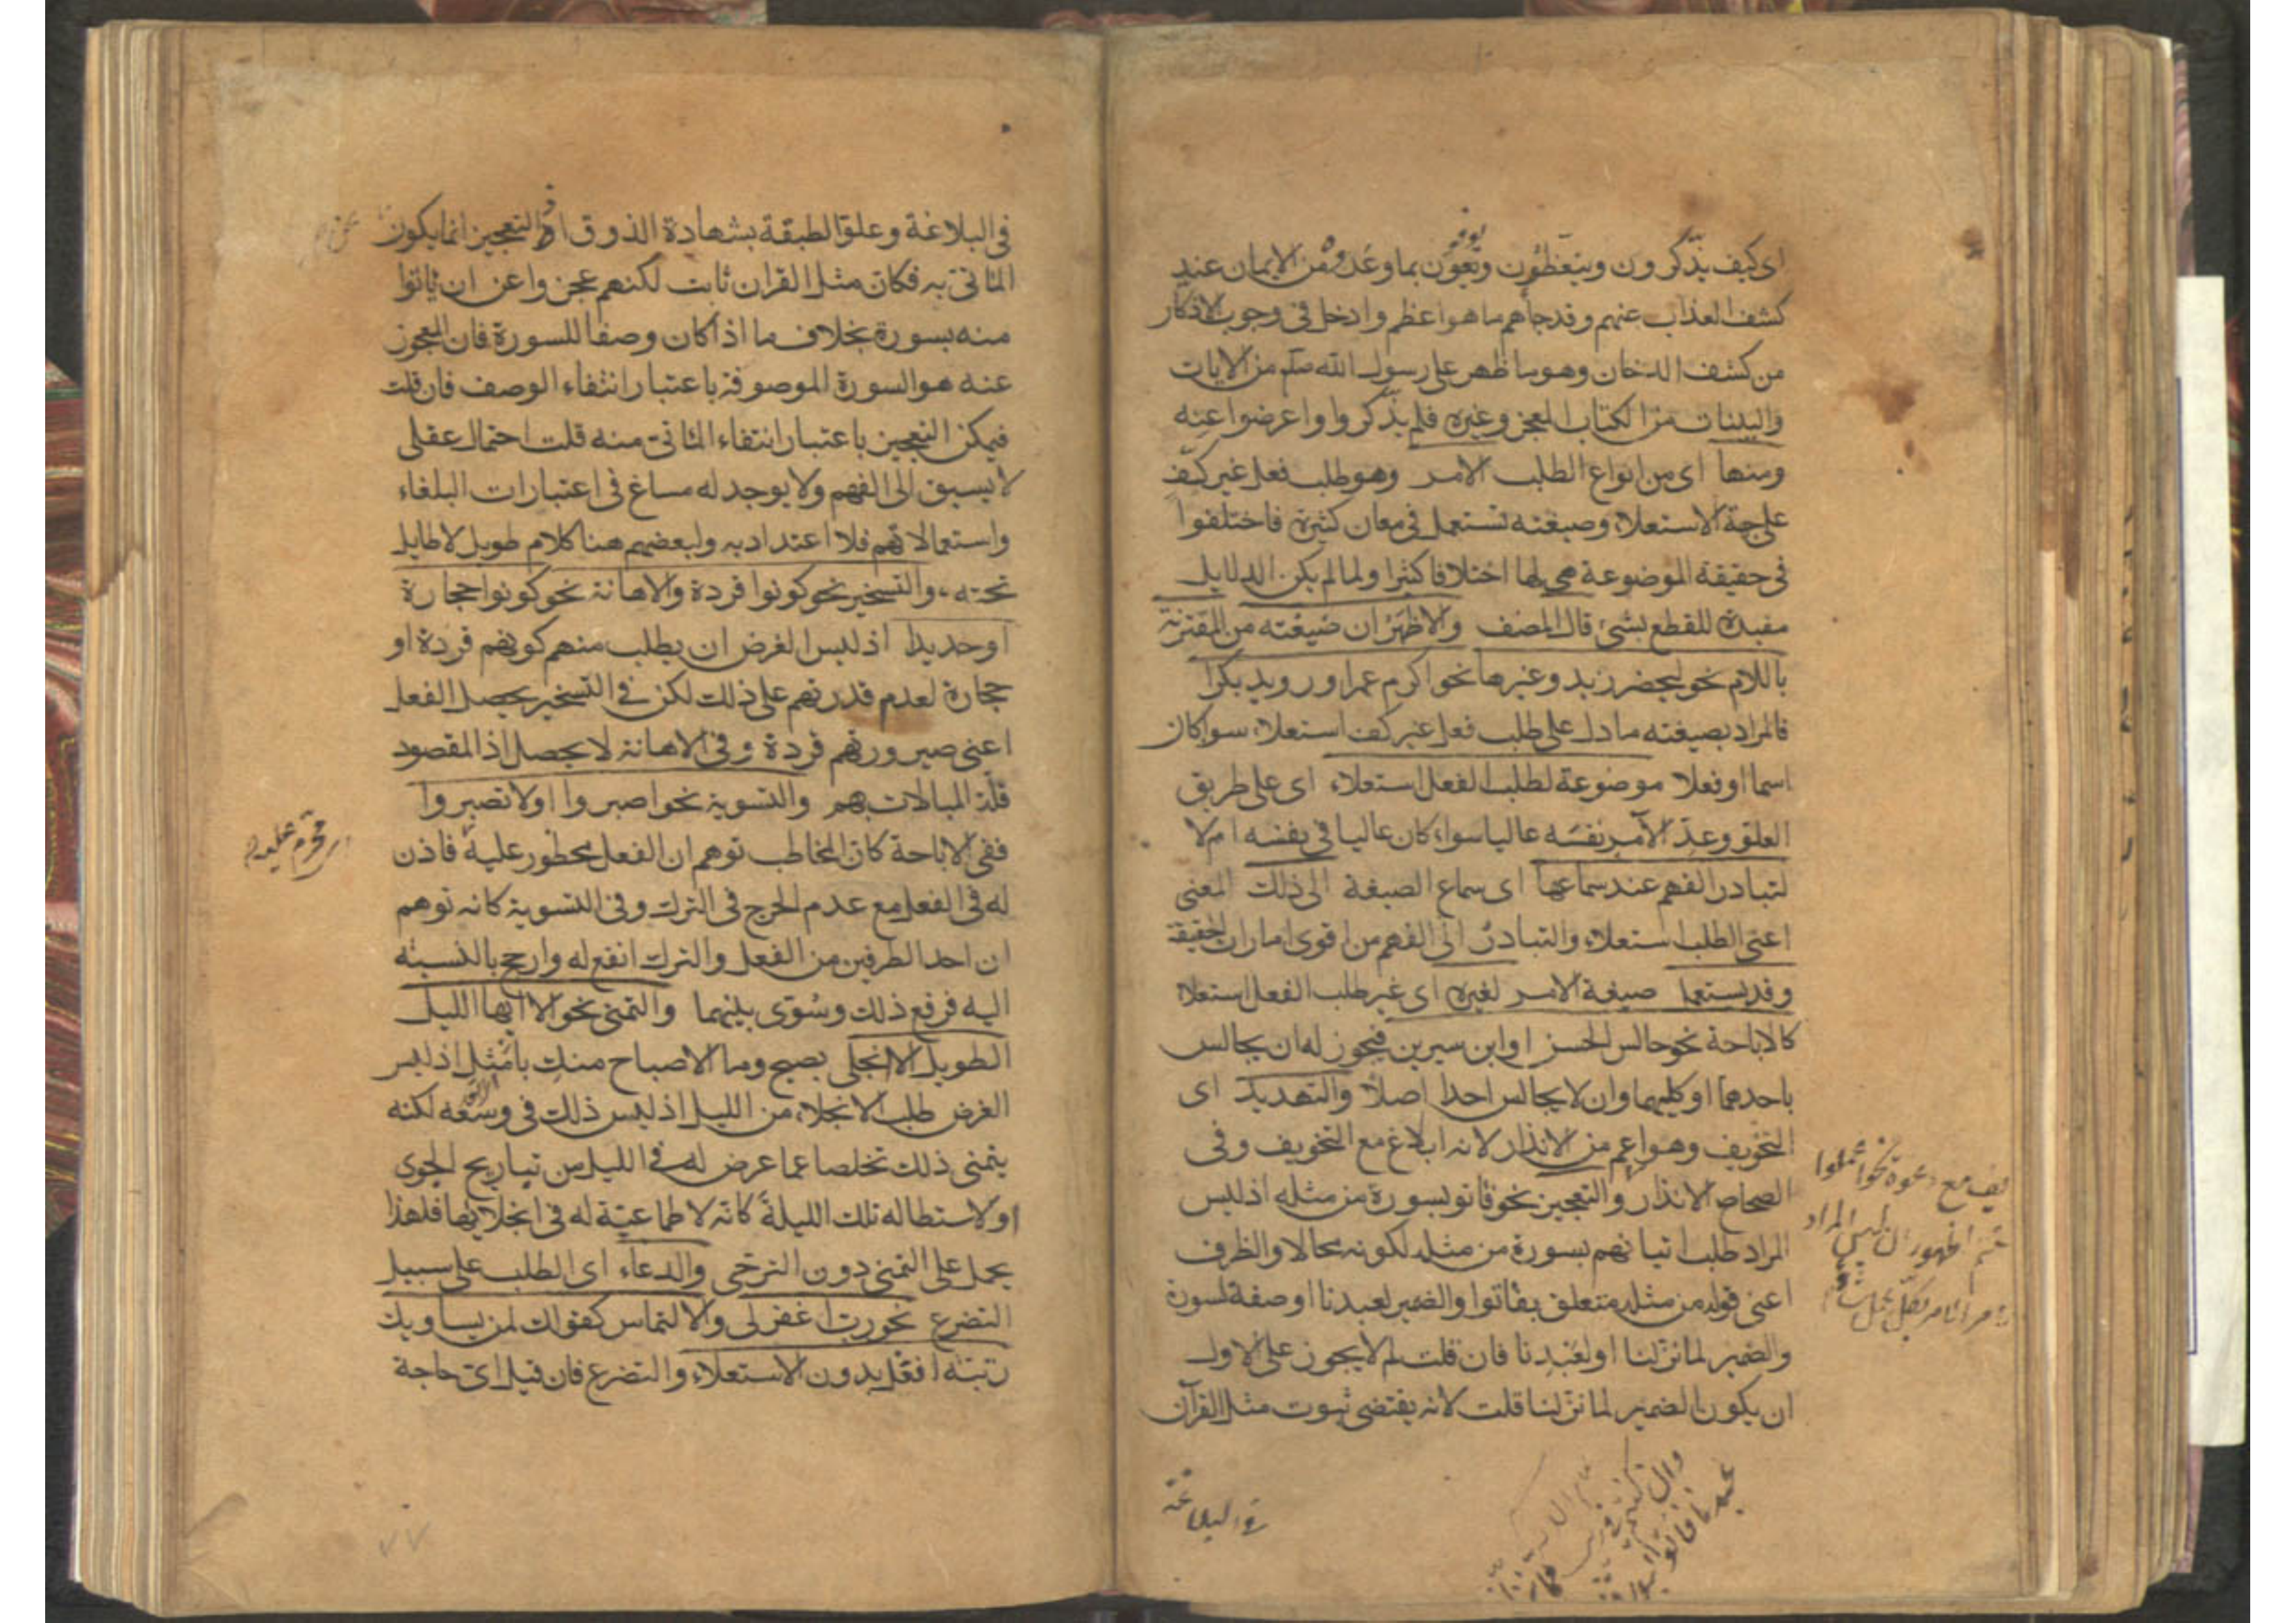 اى كيف يذّكرون ويتعظون ويَفُون بما وعدوه من الايمان عند
كشف العذاب عنهم وقد جاءهم ما هو اعظم وادخل فى وجوب الاذكار
من كشف الدخان وهو ما ظهر على رسول الله صلم من الايات
والبينات من الكتاب المعجز وغيره فلم يذّكروا واعرضوا عنه
ومنها اى من انواع الطلب الامر وهو طلب فعل غير كفّ
على جهة الاستعلاء وصيغته تستعمل فى معان كثيرة فاختلفوا
فى حقيقة الموضوعة هى لها اختلافا كثيرا ولما لم يكن الدلايل
مفيدة للقطع بشئ قال المصنف والاظهر ان صيغته من المقترنة
باللام نحو ليحضر زيد وغيرها نحو اكرم عمرا ورويد بكرا
فالمراد بصيغته ما دل على طلب فعل غير كف استعلاء سوا كان
اسما او فعلا موضوعة لطلب الفعل استعلاء اى على طريق
العلو وعدّ الآمر نفسه عاليا سواء كان عاليا فى نفسه ام لا
لتبادر الفهم عند سماعها اى سماع الصيغة الى ذلك المعنى
اعنى الطلب استعلاء والتبادر الى الفهم من اقوى امارات الحقيقة
وقد يستعمل صيغة الامر لغيره اى غير طلب الفعل استعلاء
كالاباحة نحو جالس الحسن او ابن سيرين فيجوز له ان يجالس
باحدهما او كليهما وان لا يجالس احدا اصلا والتهديد اى
التخويف وهو اعم من الانذار لانه ابلاغ مع التخويف وفى
الصحاح الانذار والتعجيز نحو فاتو بسورة من مثله اذ ليس
المراد طلب اتيانهم بسورة من مثله لكونه محالا والظرف
اعنى قوله من مثله متعلق بفاتوا والضمير لعبدنا او صفة لسورة
والضمير لما نزلنا او لعبدنا فان قلت لم لا يجوز على الاول
ان يكون الضمير لما نزلنا قلت لانه يقتضى ثبوت مثل القرآن
فى البلاغة
فى البلاغة وعلو الطبقة بشهادة الذوق اذ التعجيز انما يكون
المأتى به فكان مثل القران ثابت لكنهم عجزوا عن ان ياتوا
منه بسورة بخلاف ما اذا كان وصفا للسورة فان المعجوز
عنه هو السورة الموصوفة باعتبار انتفاء الوصف فان قلت
فيمكن التعجيز باعتبار انتفاء المأتى منه قلت احتمال عقلى
لا يسبق الى الفهم ولا يوجد له مساغ فى اعتبارات البلغاء
واستعمالاتهم فلا اعتداد به ولبعضهم هنا كلام طويل لا طايل
تحته والتسخير نحو كونوا قردة والاهانة نحو كونوا حجارة
او حديدا اذ ليس الغرض ان يطلب منهم كونهم قردة او
حجارة لعدم قدرتهم على ذلك لكن فى التسخير يحصل الفعل
اعنى صيرورتهم قردة وفى الاهانة لا يحصل اذ المقصود
قلّة المبالات بهم والتسوية نحو اصبروا اولا تصبروا
ففى الاباحة كان المخاطب توهم ان الفعل محظور عليه فاذن
له فى الفعل مع عدم الحرج فى الترك وفى التسوية كانه توهم
ان احد الطرفين من الفعل والترك انفع له وارجح بالنسبة
اليه فرفع ذلك وسُوّى بينهما والتمنى نحو الا ايها الليل
الطويل الا انجلى بصبح وما الاصباح منك بامثل اذ ليس
الغرض طلب الانجلاء من الليل اذ ليس ذلك فى وسعه لكنه
يتمنى ذلك تخلصا عما عرض له فى الليل من تباريح الجوى
ولاستطالة تلك الليلة كانه لا طماعية له فى انجلائها فلهذا
يحمل على التمنى دون الترجى والدعاء اى الطلب على سبيل
التضرع نحو رب اغفر لى والالتماس كقولك لمن يساويك
رتبته افعل بدون الاستعلاء والتضرع فان قيل اى حاجة
محرم عليه
٧٧